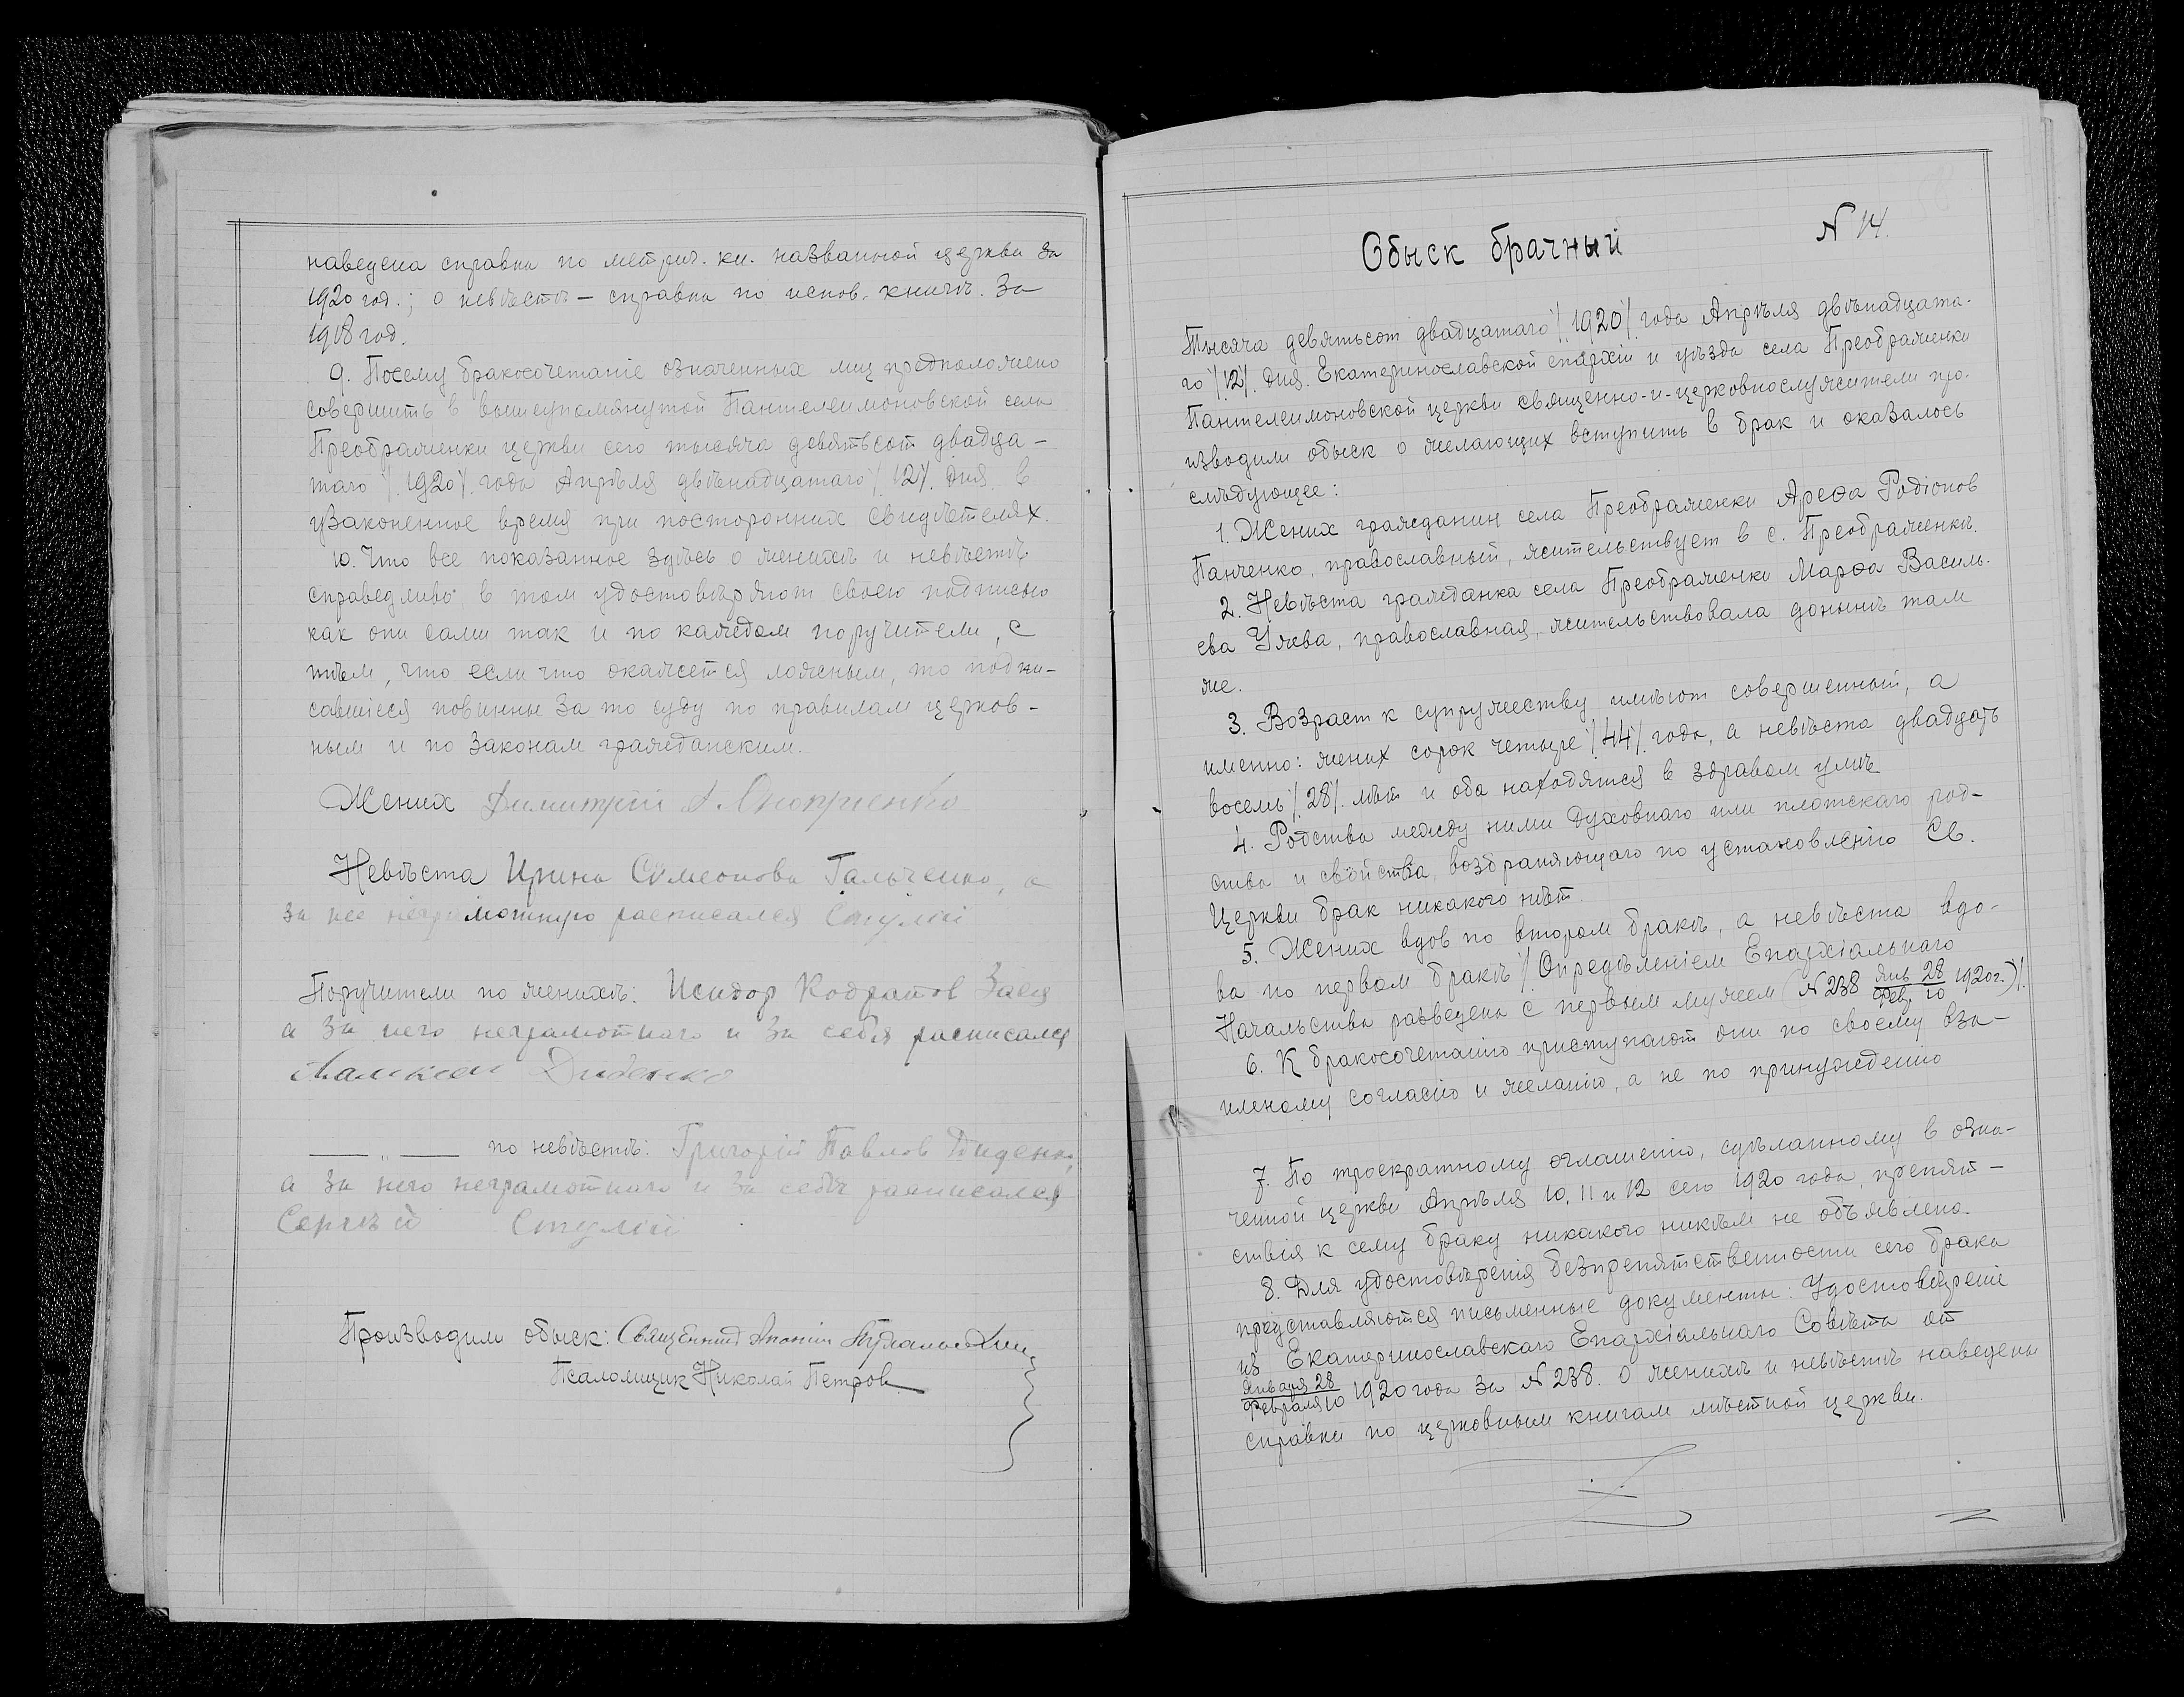 наведена справка по метрич. кн. названной церкви за
1920 год.; о невѣстѣ — справка по испов. книгѣ. За
1918 год.
9. Посему бракосочетаніе означенных лиц предположено
совершить в вышеупомянутой Пантелеимоновской села
Преображенки церкви сего тысяча девятьсот двадца-
таго /.1920/. года Апрѣля двѣнадцатаго /.12/. дня. в
узаконенное время при посторонних свидѣтелях.
10. Что все показанное здѣсь о женихѣ и невѣстѣ
справедливо в том удостовѣряют своею подписью
как они сами так и по каждом поручители, с
тѣм, что если что окажется ложным, то подпи-
савшіеся повинны за то суду по правилам церков-
ным и по законам гражданским.
Жених Димитрій Оноприенко
Невѣста Ирина Сѵмеонова Гальченко, а
за нее неграмотную расписался Стулій
Поручители по женихѣ: Исидор Кодратов Заец
а за него неграмотнаго и за себя расписался
Диденко
— „ — по невѣстѣ: Григорій Павлов Диденко,
а за него неграмотнаго и за себя расписался
Сергѣй Стулій
Производили обыск: Священник
Псаломщик Николай Петров
Обыск брачный
N 14.
Тысяча девятьсот двадцатаго /.1920/. года Апрѣля двѣнадцата-
го /.12/. дня. Екатеринославской епархіи и уѣзда села Преображенки
Пантелеимоновской церкви священно-и-церковнослужители про-
изводили обыск о желающих вступить в брак и оказалось
слѣдующее:
1. Жених гражданин села Преображенки Арефа Родіонов
Панченко, православный, жительствует в с. Преображенкѣ.
2. Невѣста гражданка села Преображенки Марфа Василь-
ева Ужва, православная, жительствовала донынѣ там
же.
3. Возраст к супружеству имѣют совершенный, а
именно: жених сорок четыре /.44/. года, а невѣста двадцать
восемь /.28/. лѣт и оба находятся в здравом умѣ
4. Родства между ними духовнаго или плотскаго род-
ства и свойства, возбраняющаго по установленію Св.
Церкви брак никакого нѣт.
5. Жених вдов по втором бракѣ, а невѣста вдо-
ва по первом бракѣ /. Опредѣленіем Епархіальнаго
Начальства разведена с первым мужем (N 238 Янв 28 / Фев. 10 1920 г.)/.
6. К бракосочетанію приступают они по своему вза-
имному согласію и желанію, а не по принужденію
7. По троекратному оглашенію, сдѣланному в озна-
ченной церкви Апрѣля 10, 11 и 12 сего 1920 года, препят-
ствія к сему браку никакого никѣм не объявлено.
8. Для удостовѣренія безпрепятственности сего брака
представляются письменные документы: Удостовѣреніе
из Екатеринославскаго Епархіальнаго Совѣта от
Января 28 / Февраля 10 1920 года за N 238. О женихѣ и невѣстѣ наведены
справки по церковным книгам мѣстной церкви.